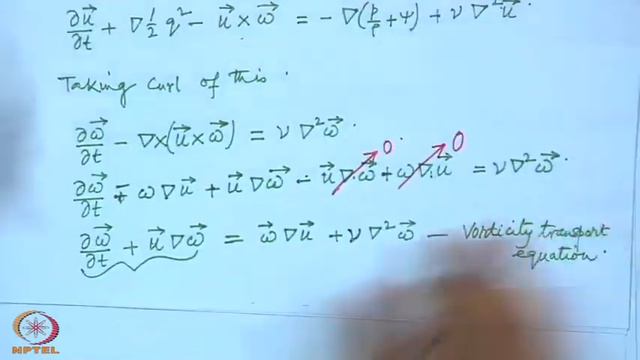 ∂u⃗/∂t + ∇ 1/2 q² − u⃗ × ω⃗ = − ∇(p/ρ + ψ) + ν ∇² u⃗.
Taking curl of this.
∂ω⃗/∂t − ∇×(u⃗ × ω⃗) = ν ∇² ω⃗.
∂ω⃗/∂t − ω ∇ u⃗ + u⃗ ∇ ω⃗ − u⃗ ∇·ω⃗ 0 + ω ∇·u⃗ 0 = ν ∇² ω⃗.
∂ω⃗/∂t + u⃗ ∇ ω⃗ = ω⃗ ∇ u⃗ + ν ∇² ω⃗ — Vorticity transport
equation.
NPTEL